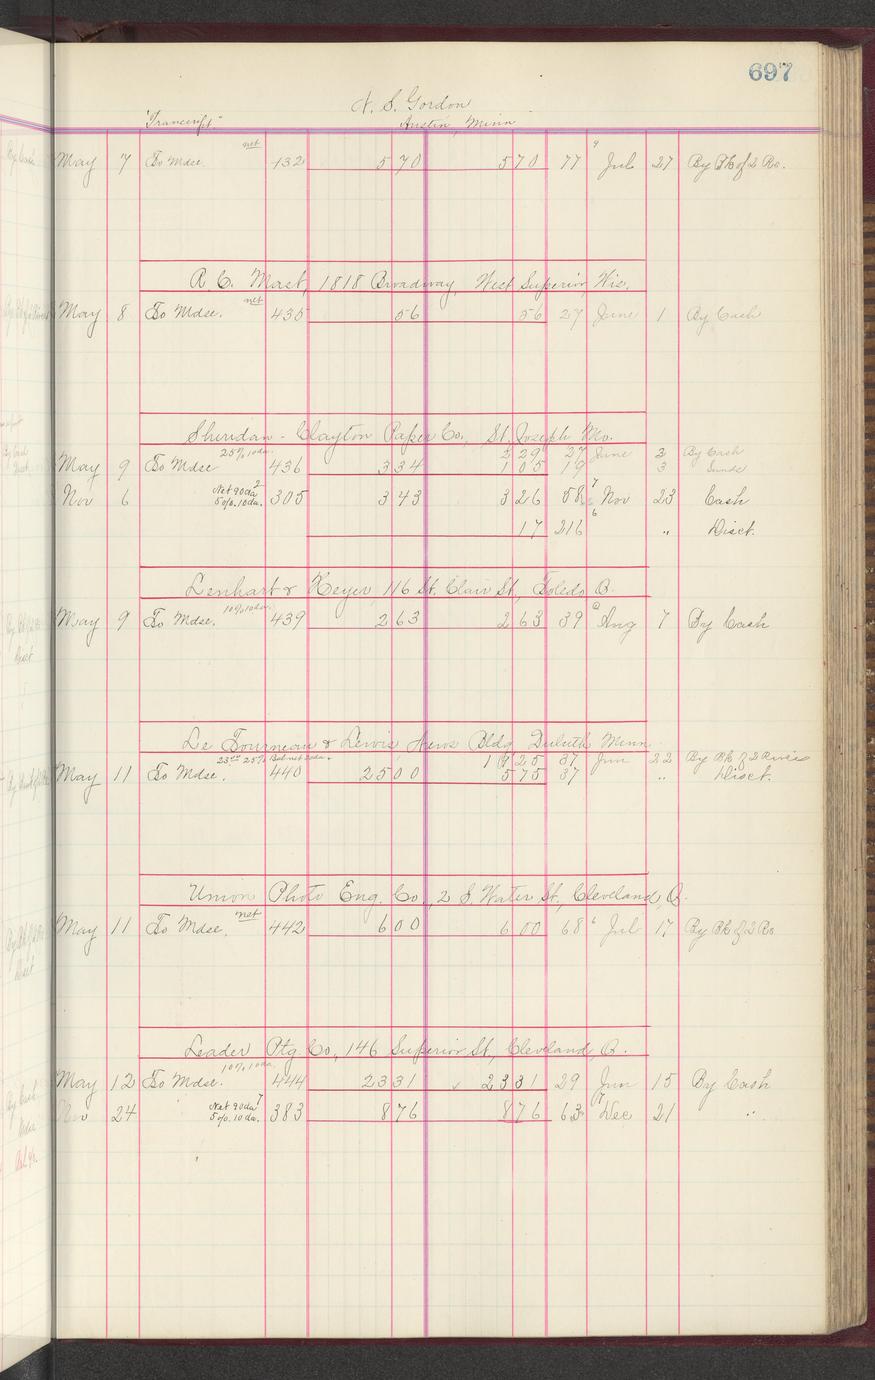 697
N. S. Gordon
"Transcript" Austin, Minn
May 7 To Mdse. net 132 5 70 5 70 77 9 Jul 27 By Bk of 2 Rs.
R. C. Mast, 1818 Broadway, West Superior, Wis.
May 8 To Mdse. net 435 56 56 27 June 1 By Cash
Sheridan - Clayton Paper Co., St. Joseph Mo.
25% 10 da. 2 29 27 June 3 By Cash
May 9 To Mdse 436 3 34 1 05 19 3 Sunds
Nov 6 Net 90 da 2 5% 10 da. 305 3 43 3 26 58 7 Nov 23 Cash
17 216 6 " Disct.
Lenhart & Heyer, 116 St. Clair St, Toledo O.
May 9 To Mdse. 10% 10 da. 439 2 63 2 63 39 Aug 7 By Cash
Le Tourneau & Lewis, News Bldg Duluth Minn.
19 25 37 Jun 22 By Bk of 2 Rivers
May 11 To Mdse. 440 25 00 5 75 37 " Disct.
Union Photo Eng. Co., 2 S. Water St., Cleveland, O.
May 11 To Mdse. net 442 6 00 6 00 68 6 Jul 17 By Bk of 2 Rs
Leader Ptg. Co., 146 Superior St, Cleveland, O.
May 12 To Mdse. 10% 10 da. 444 23 31 23 31 29 Jun 15 By Cash
Nov 24 Net 90 da 7 5% 10 da. 383 8 76 8 76 63 Dec 21 "